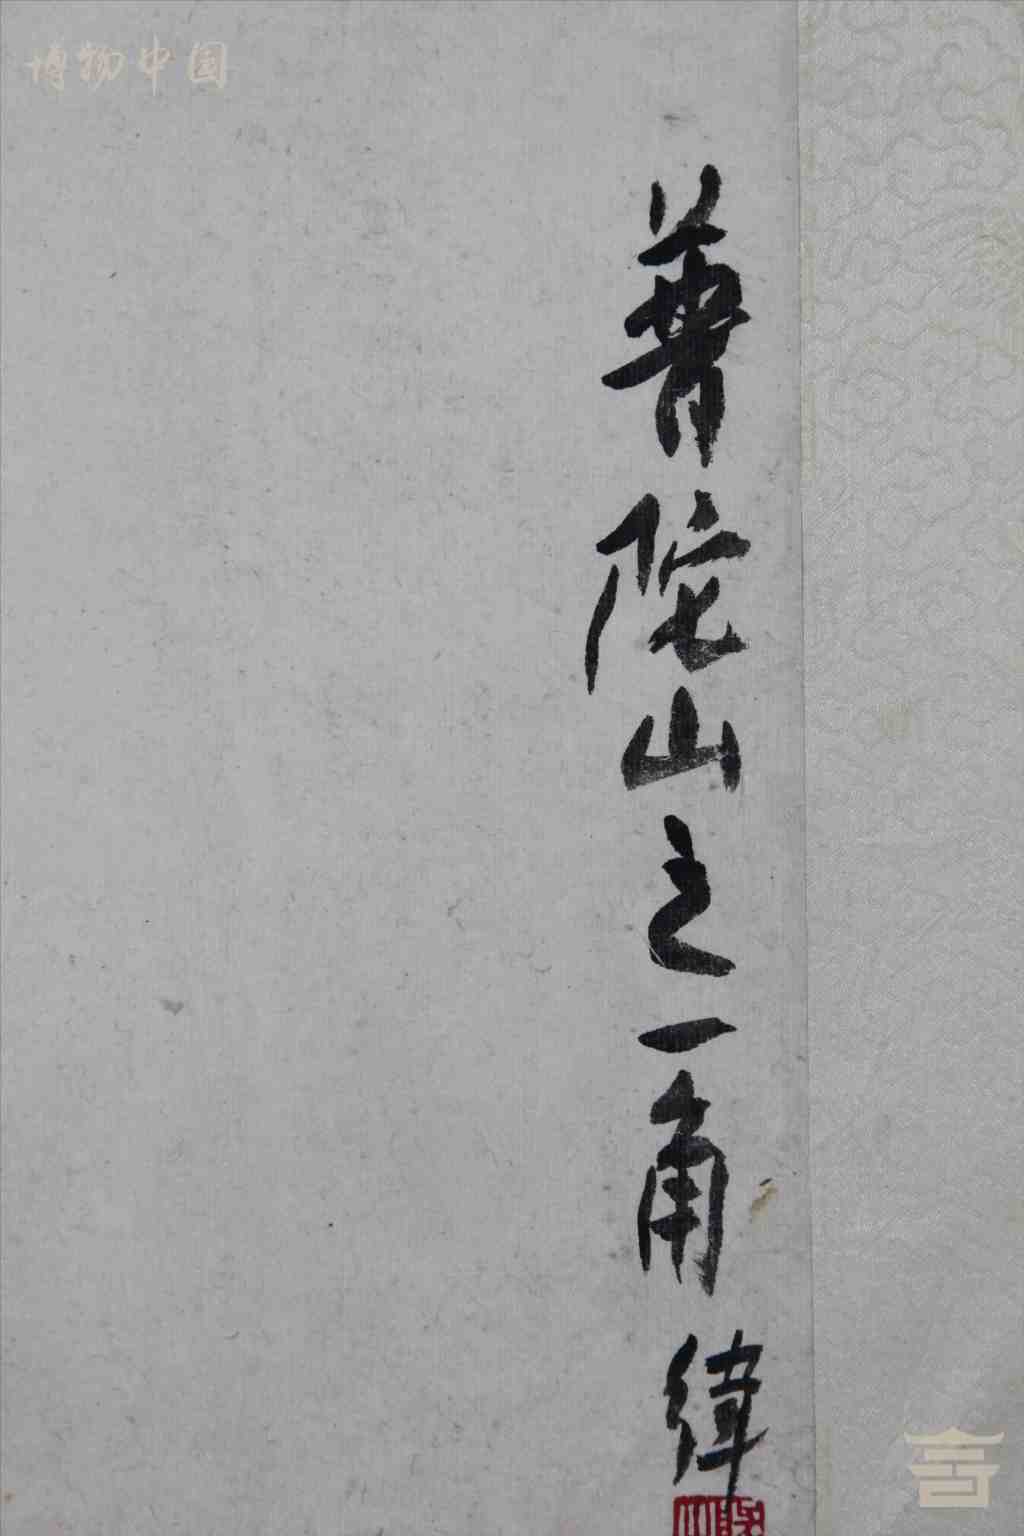 博物中国
普陀山之一角 緯